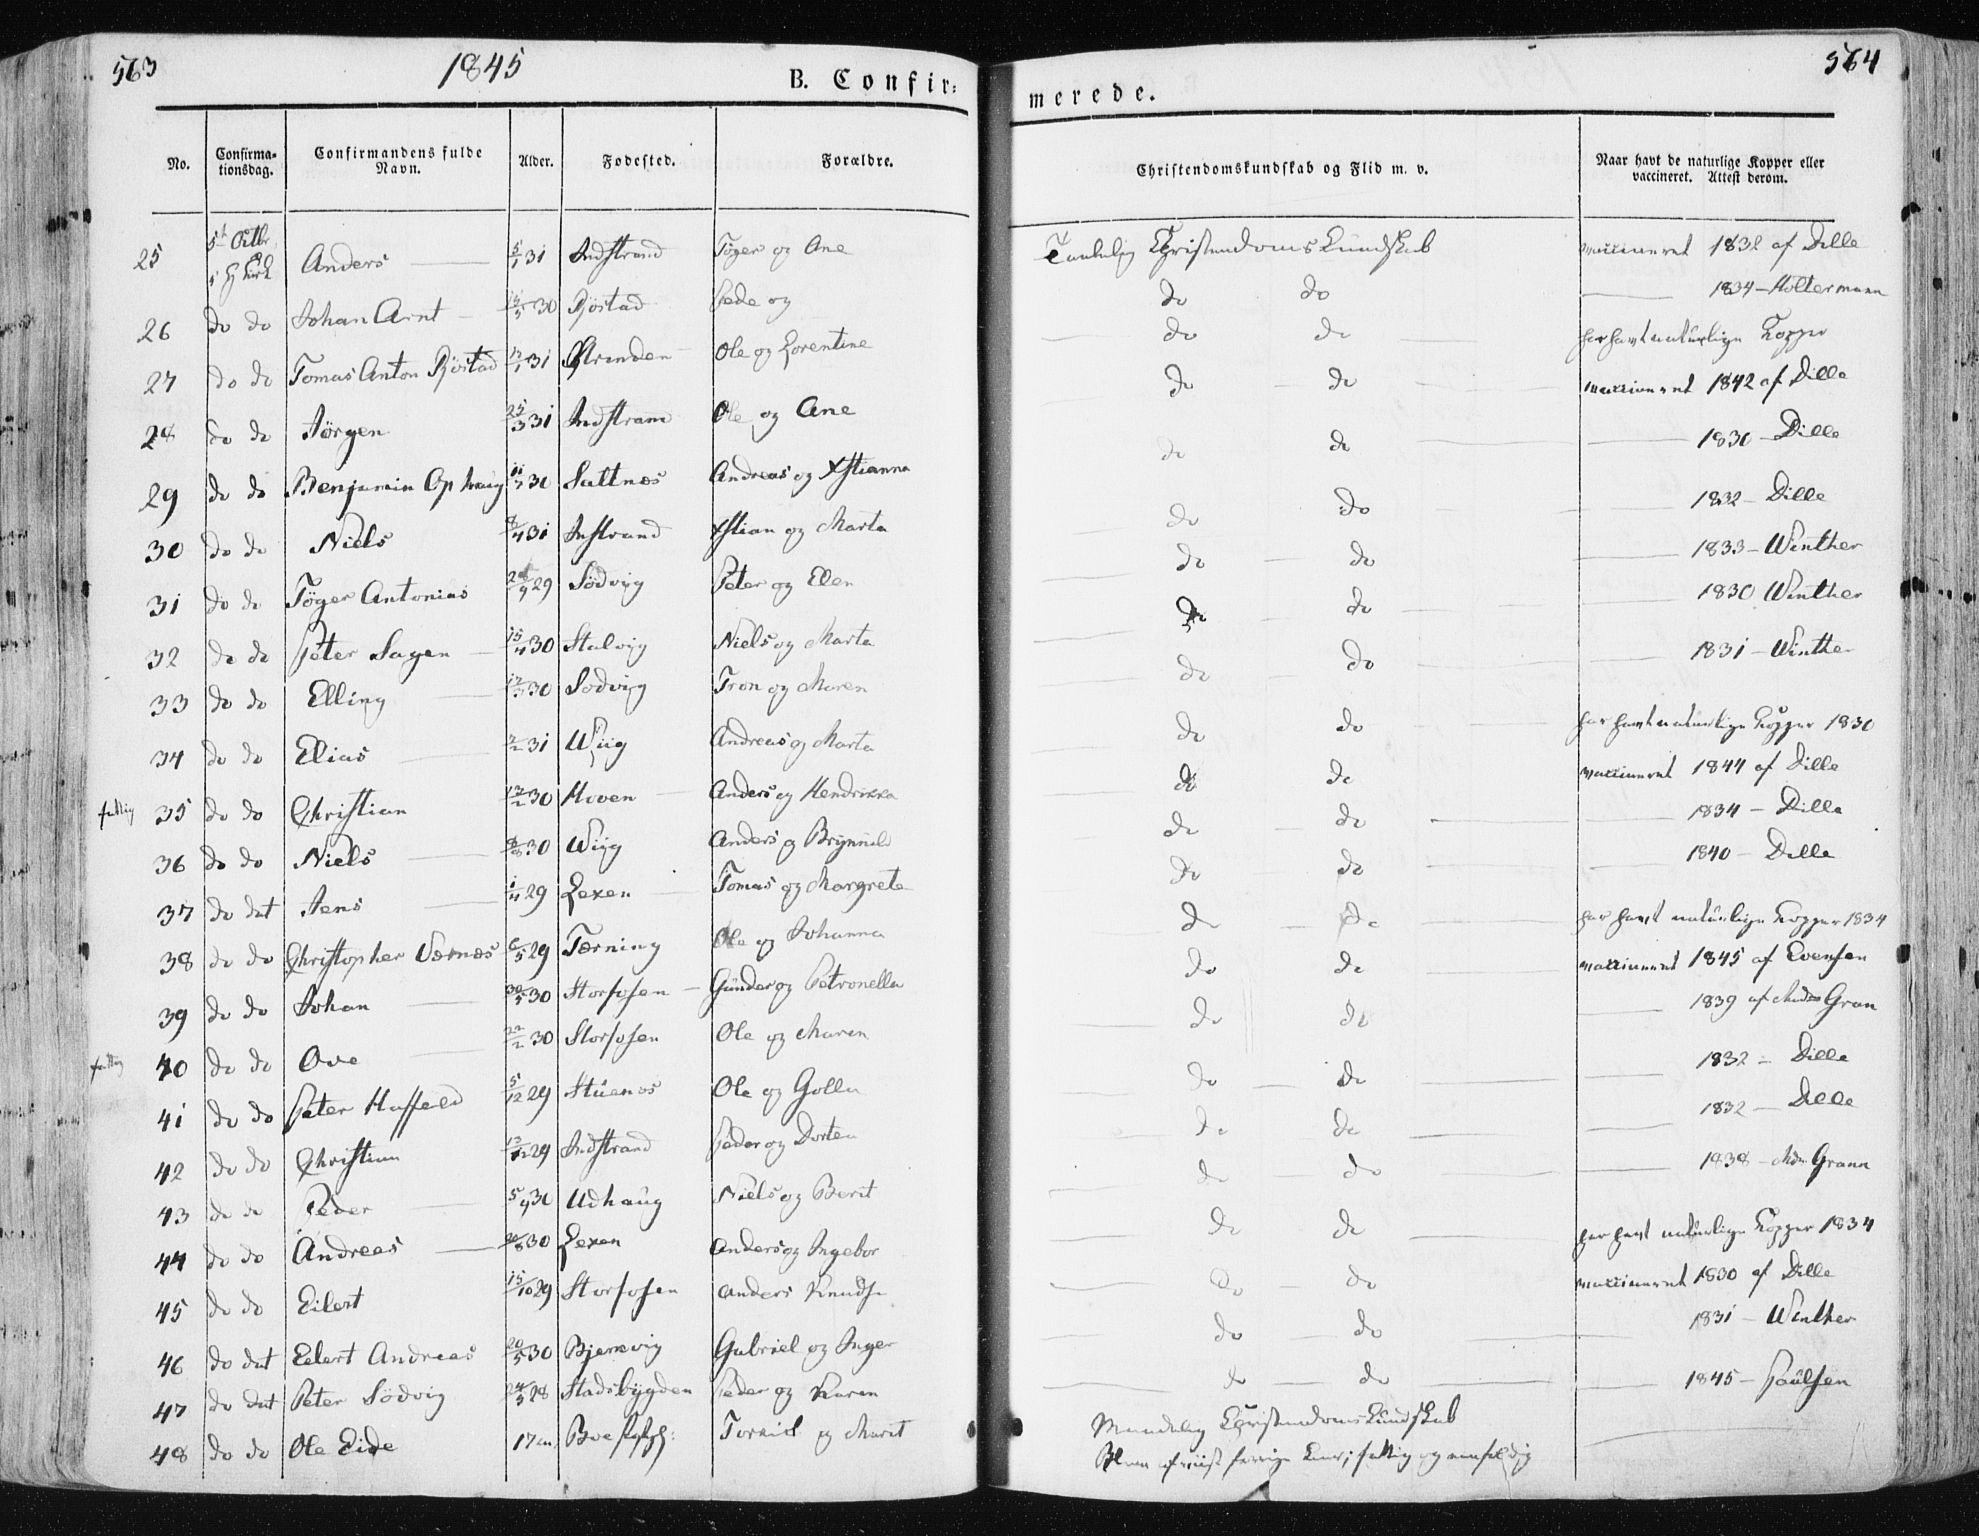 563
1845
B. Confir:
No. Confirma= tionsdag. Confirmandens fulde Navn. Alder. Fødested. Forældre.
25 5t Octbr i Hkirk Anders 5/1 31 Indstrand Töger og Ane
26 do do Johan Arnt 30 Röstad Pede og
27 do do Tomas Anton Röstad 31 Stranden Ole og Lorentine
28 do do Jörgen 25/3 31 Indstrand Ole og Ane
29 do do Benjamin Ophaug 30 Saltnæs Andreas og Xstianna
30 do do Niels 31 Instrand Xstian og Marta
31 do do Töger Antonius 29 Södviig Peter og Elen
32 do do Peter Sagen 15/4 30 Stalviig Niels og Marta
33 do do Elling 30 Sodviig Tron og Maren
34 do do Elias 31 Wiig Andreas og Marta
fattig 35 do do Christian 30 Moven Anders og Hendrikka
36 do do Niels 30 Wiig Anders og Brynnild
37 do dat Jens 29 Lexen Tomas og Margrete
38 do do Christopher Værnæs 29 Tærning Ole og Johanna
39 do do Johan 30/5 30 Storfosen Günder og Petronella
fattig 40 do do Ove 30 Storfosen Ole og Maren
41 do do Peter Haffeld 5/12 29 Stuenæs Ole og Golla
42 do do Christian 13/12 29 Indstrand Peder og Dortea
43 do do Peder 30 Udhaug Niels og Berit
44 do do Andreas 30 Lexen Anders og Ingebor
45 do do Eilert 15/10 29 Storfosen Anders Knuds
46 do dat Eilert Andreas 20/5 30 Bjerevig Gabriel og Inger
47 do dat Peter Södvig 28 Stadsbygden Peder og Karen
48 do do Ole Eide 17 Boe Torkiel og Marit
564
merede.
Christendomskundskab og Flid m. v. Naar havt de naturlige Kopper eller vaccineret. Attest derom.
Taalelig Christendoms Kundskab vaccineret 1832 af Dille
do do 1834 - Holtermann
do do har havt naturlige Kopper
do do vaccineret 1842 af Dille
do do 1830 - Dille
do do 1832 - Dille
do do 1833 - Winther
do do 1830 Winther
do do 1831 - Winther
do do har havt naturlige Kopper 1830
do do vaccineret 1844 af Dille
do do 1834 - Dille
do do 1840 - Dille
do do har havt naturlige Kopper 1834
do do vaccineret 1845 af Evensen
do do 1839 af Gran
do do 1832 - Dille
do do 1832 - Dille
do do 1838 - Grann
do do har havt naturlige Kopper 1834
do do vaccineret 1830 af Dille
do do 1831 - Winther
do do 1845 - Paulsen
Maadelig Christendoms Kundskab
Blev afviist forrige Aar; fattig og eenfoldig